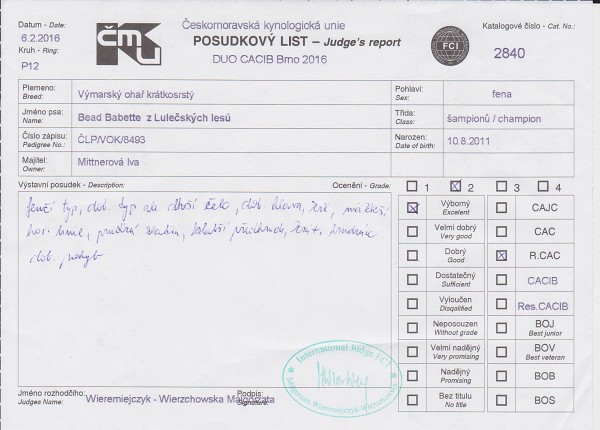 Datum - Date:
6.2.2016
Kruh - Ring:
P12
ČMKU
Českomoravská kynologická unie
POSUDKOVÝ LIST – Judge's report
DUO CACIB Brno 2016
FCI
Katalogové číslo - Cat. No.:
2840
Plemeno:
Breed:
Výmarský ohař krátkosrstý
Pohlaví:
Sex:
fena
Jméno psa:
Name:
Bead Babette z Lulečských lesú
Třída:
Class:
šampionů / champion
Číslo zápisu:
Pedigree No.:
ČLP/VOK/8493
Narozen:
Date of birth:
10.8.2011
Majitel:
Owner:
Mittnerová Iva
Výstavní posudek - Description:
Ocenění - Grade:
1 2 3 4
typ, dob. typ, čelo, dob. hlava,
hor. linie,
dob. pohyb
Výborný
Excelent
CAJC
Velmi dobrý
Very good
CAC
Dobrý
Good
R.CAC
Dostatečný
Sufficient
CACIB
Vyloučen
Disqalified
Res.CACIB
Neposouzen
Without grade
BOJ
Best junior
Velmi nadějný
Very promising
BOV
Best veteran
Nadějný
Promising
BOB
Bez titulu
No title
BOS
International Judge FCI
Małgorzata Wieremiejczyk-Wierzchowska
Jméno rozhodčího:
Judges Name:
Wieremiejczyk - Wierzchowska Malgorzata
Podpis:
Signature: